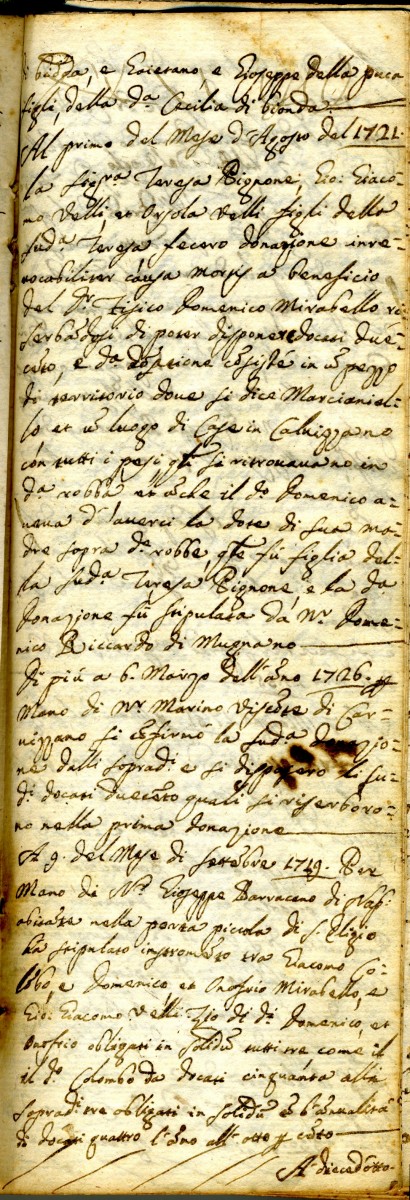 budda, e Gaietano, e Gioseppe della puca
figli, della d.a Cecilia di bionda
Al primo del Mese d'Agosto del 1721.
la Sig.ra Teresa Pignone, Gio: Giaco-
mo Velli, et Orsola Velli figli della
sud.a Teresa fecero donazione inre-
vocabiliter causa mortis a beneficio
del D.r Fisico Domenico Mirabello ri
serbandosi di poter disponere docati due
cẽto, e d.a donatione cõsiste in ũ pezzo
di territorio dove si dice Marcianiel-
lo et ũ luogo di Case in Calvizzano
con tutti i pesi q.li si ritrovavano in
d.a robba et anche il d.o Domenico a-
veva d'haverci la dote di sua ma-
dre sopra d.e robbe, q.le fu figlia del-
la sud.a Teresa Pignone, e la d.a
donazione fu stipulata da N.r Dome-
nico Riccardo di Mugnano
Di più a 6. Marzo dell'año 1726. p
mano di N.r Marino Viscõte di Car-
vizzano si cõfirmò la sud.a donazio-
ne dalli soprad.i e si disposero li su-
d.i docati duecẽto quali si riserboro-
no nella prima donazione
A 9. del Mese di Settẽbre 1719. Per
Mano di N.r Gioseppe Barracano di Nap.
abitãte nella porta piccola di S. Eligio
ha stipulato instromẽto tra Giacomo Co-
lõbo, e Domenico et Onofrio Mirabello, e
Gio: Giacomo Velli Zio di d.i Domenico, et
Onofrio obligati in solidũ tutti tre come il
il d.o Colombo da docati cinquanta alli
soprad.i tre obligati in solidũ cõ l'annualità
di docati quattro l'año all' otto p cẽto
A diecedotto